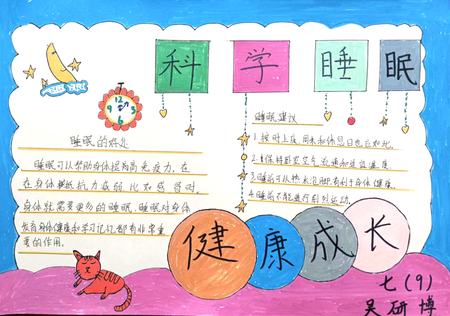 科学睡眠
12
6
睡眠的好处
睡眠可以帮助身体提高免疫力,在
在身体抵抗力减弱比如感冒时,
身体就需要更多的睡眠,睡眠对身体
发育身体健康和学习记忆都有非常重
要的作用。
睡眠建议
1.按时上床,周末和休息日也应如此。
2.保持卧室空气
3.睡前可以
有利于身体健康。
4.睡前不能进行剧烈运动。
健康成长
七(9)
吴研博